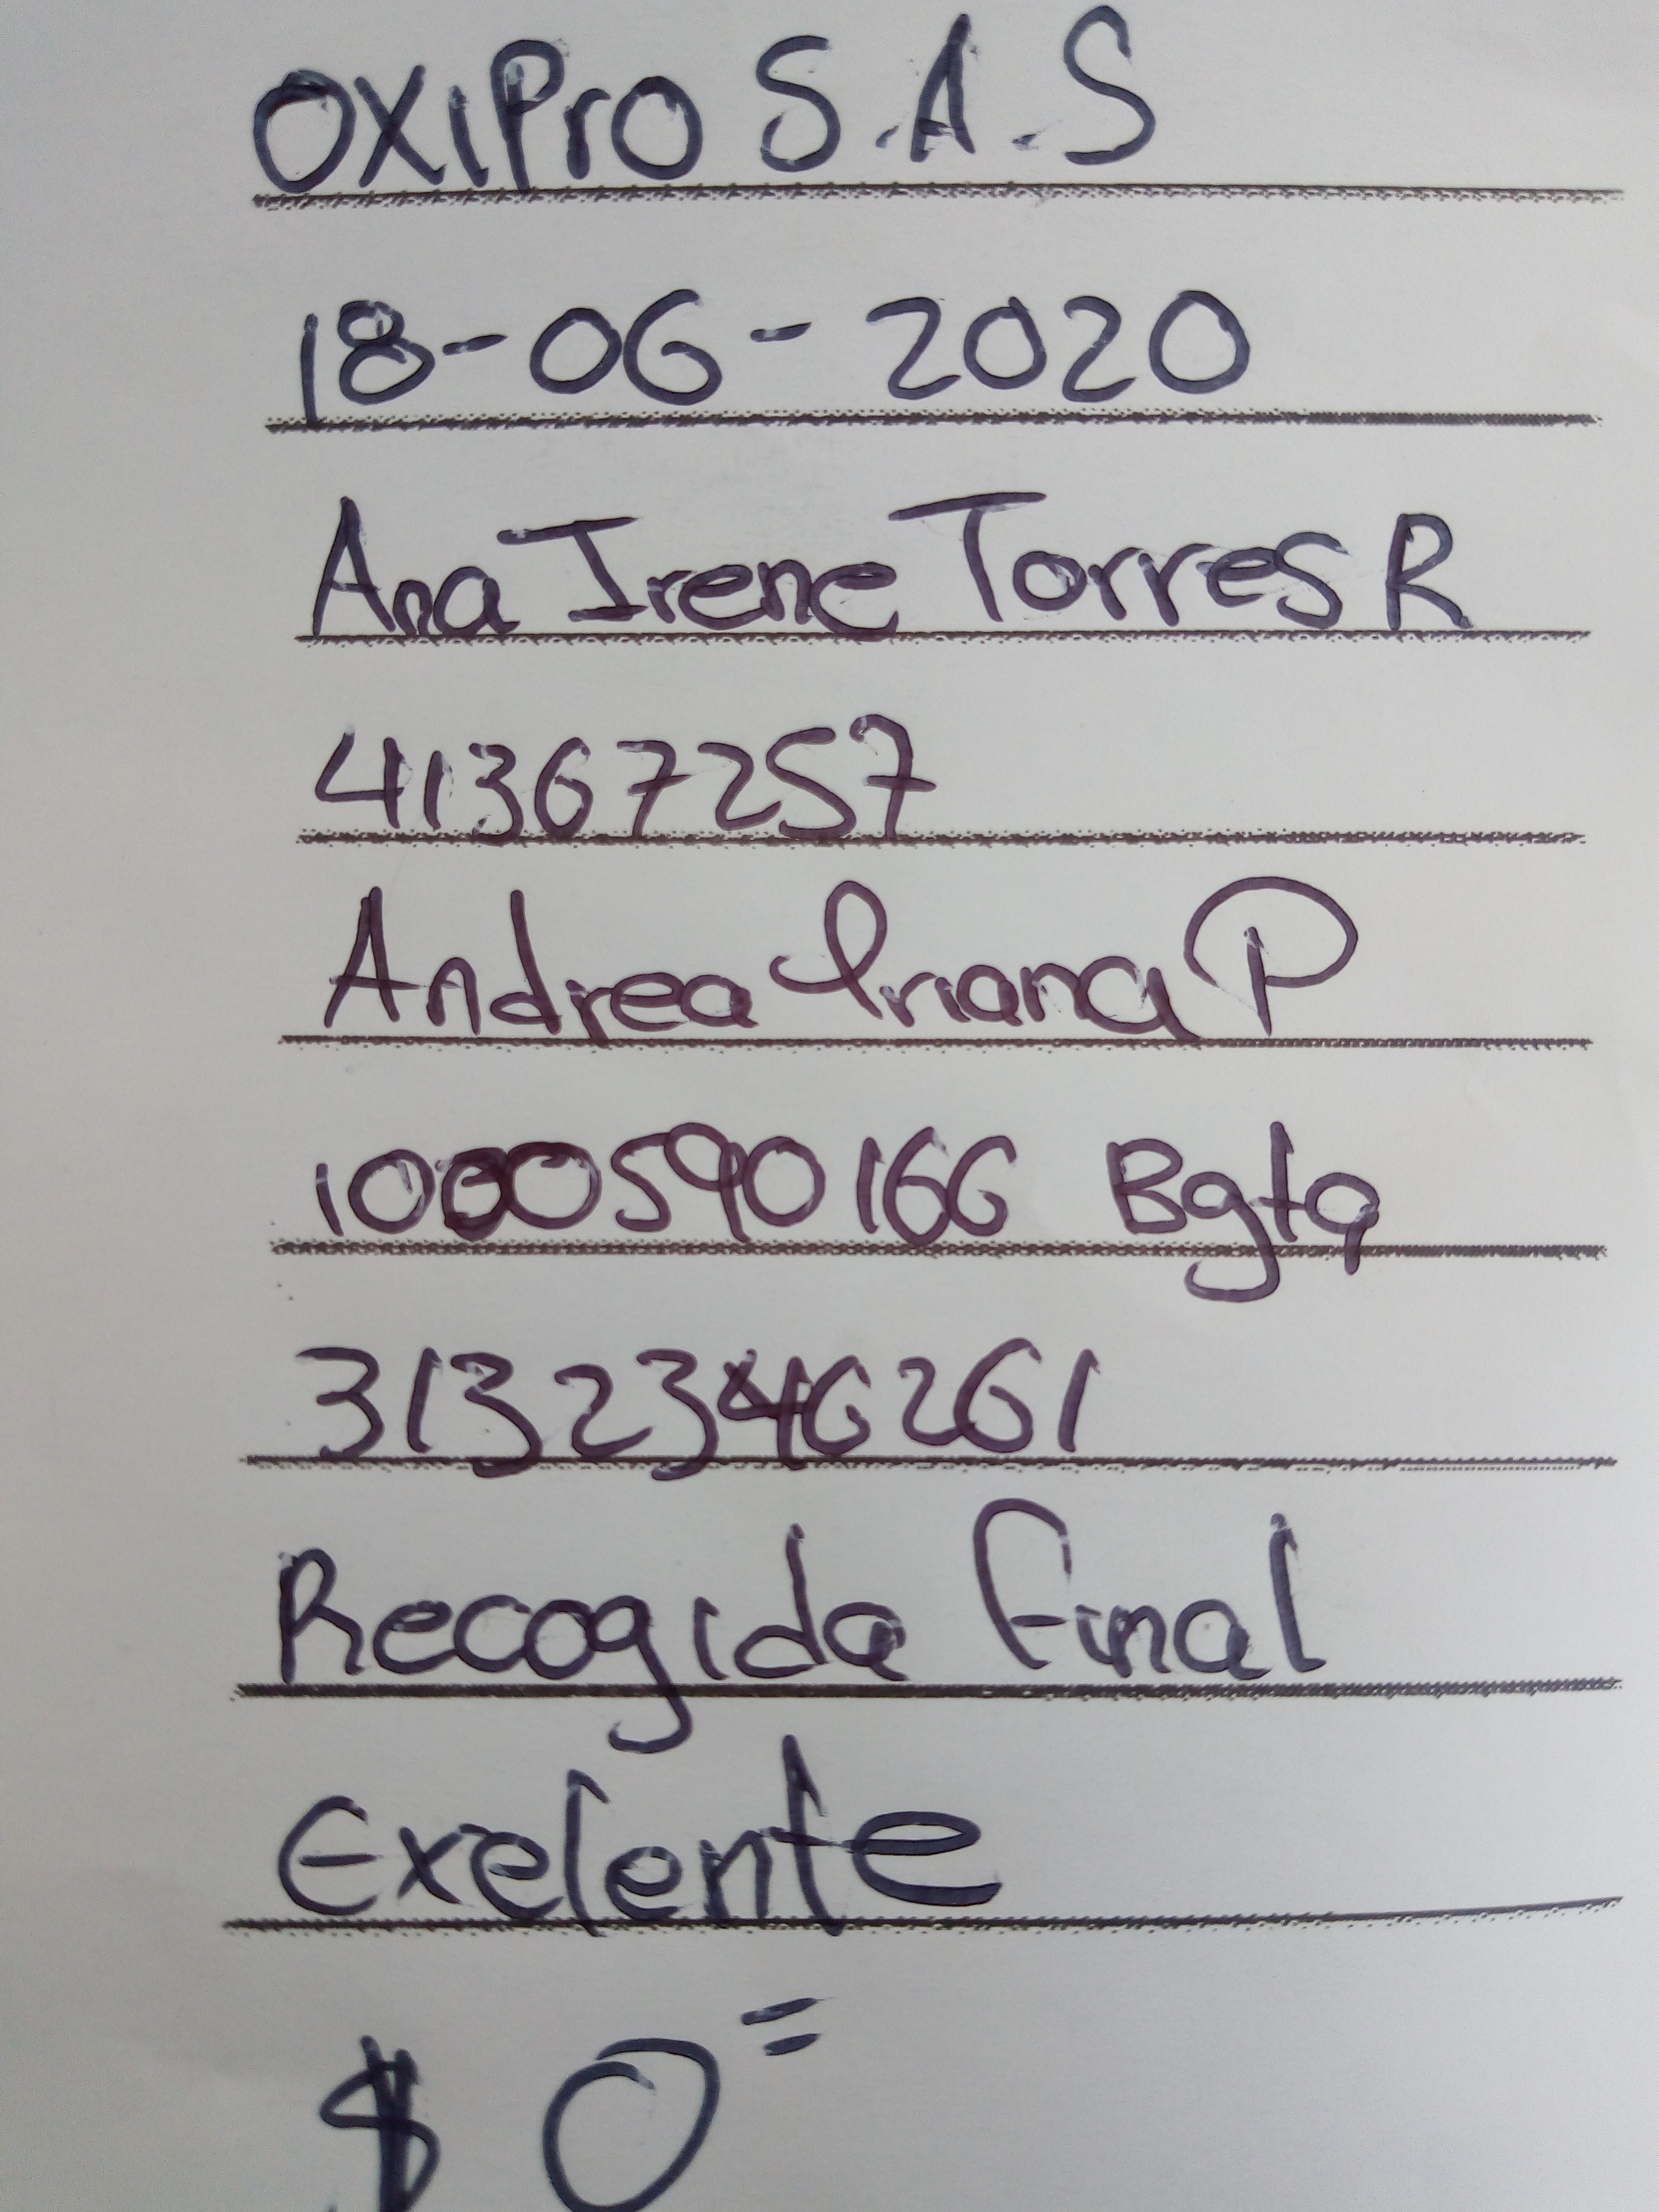 OXIPrO S.A.S
18-06-2020
Ana Irene Torres R
41367257
Andrea Iriana P
1000590166 Bgta
3132346261
Recogida Final
Exelente
$ 0=